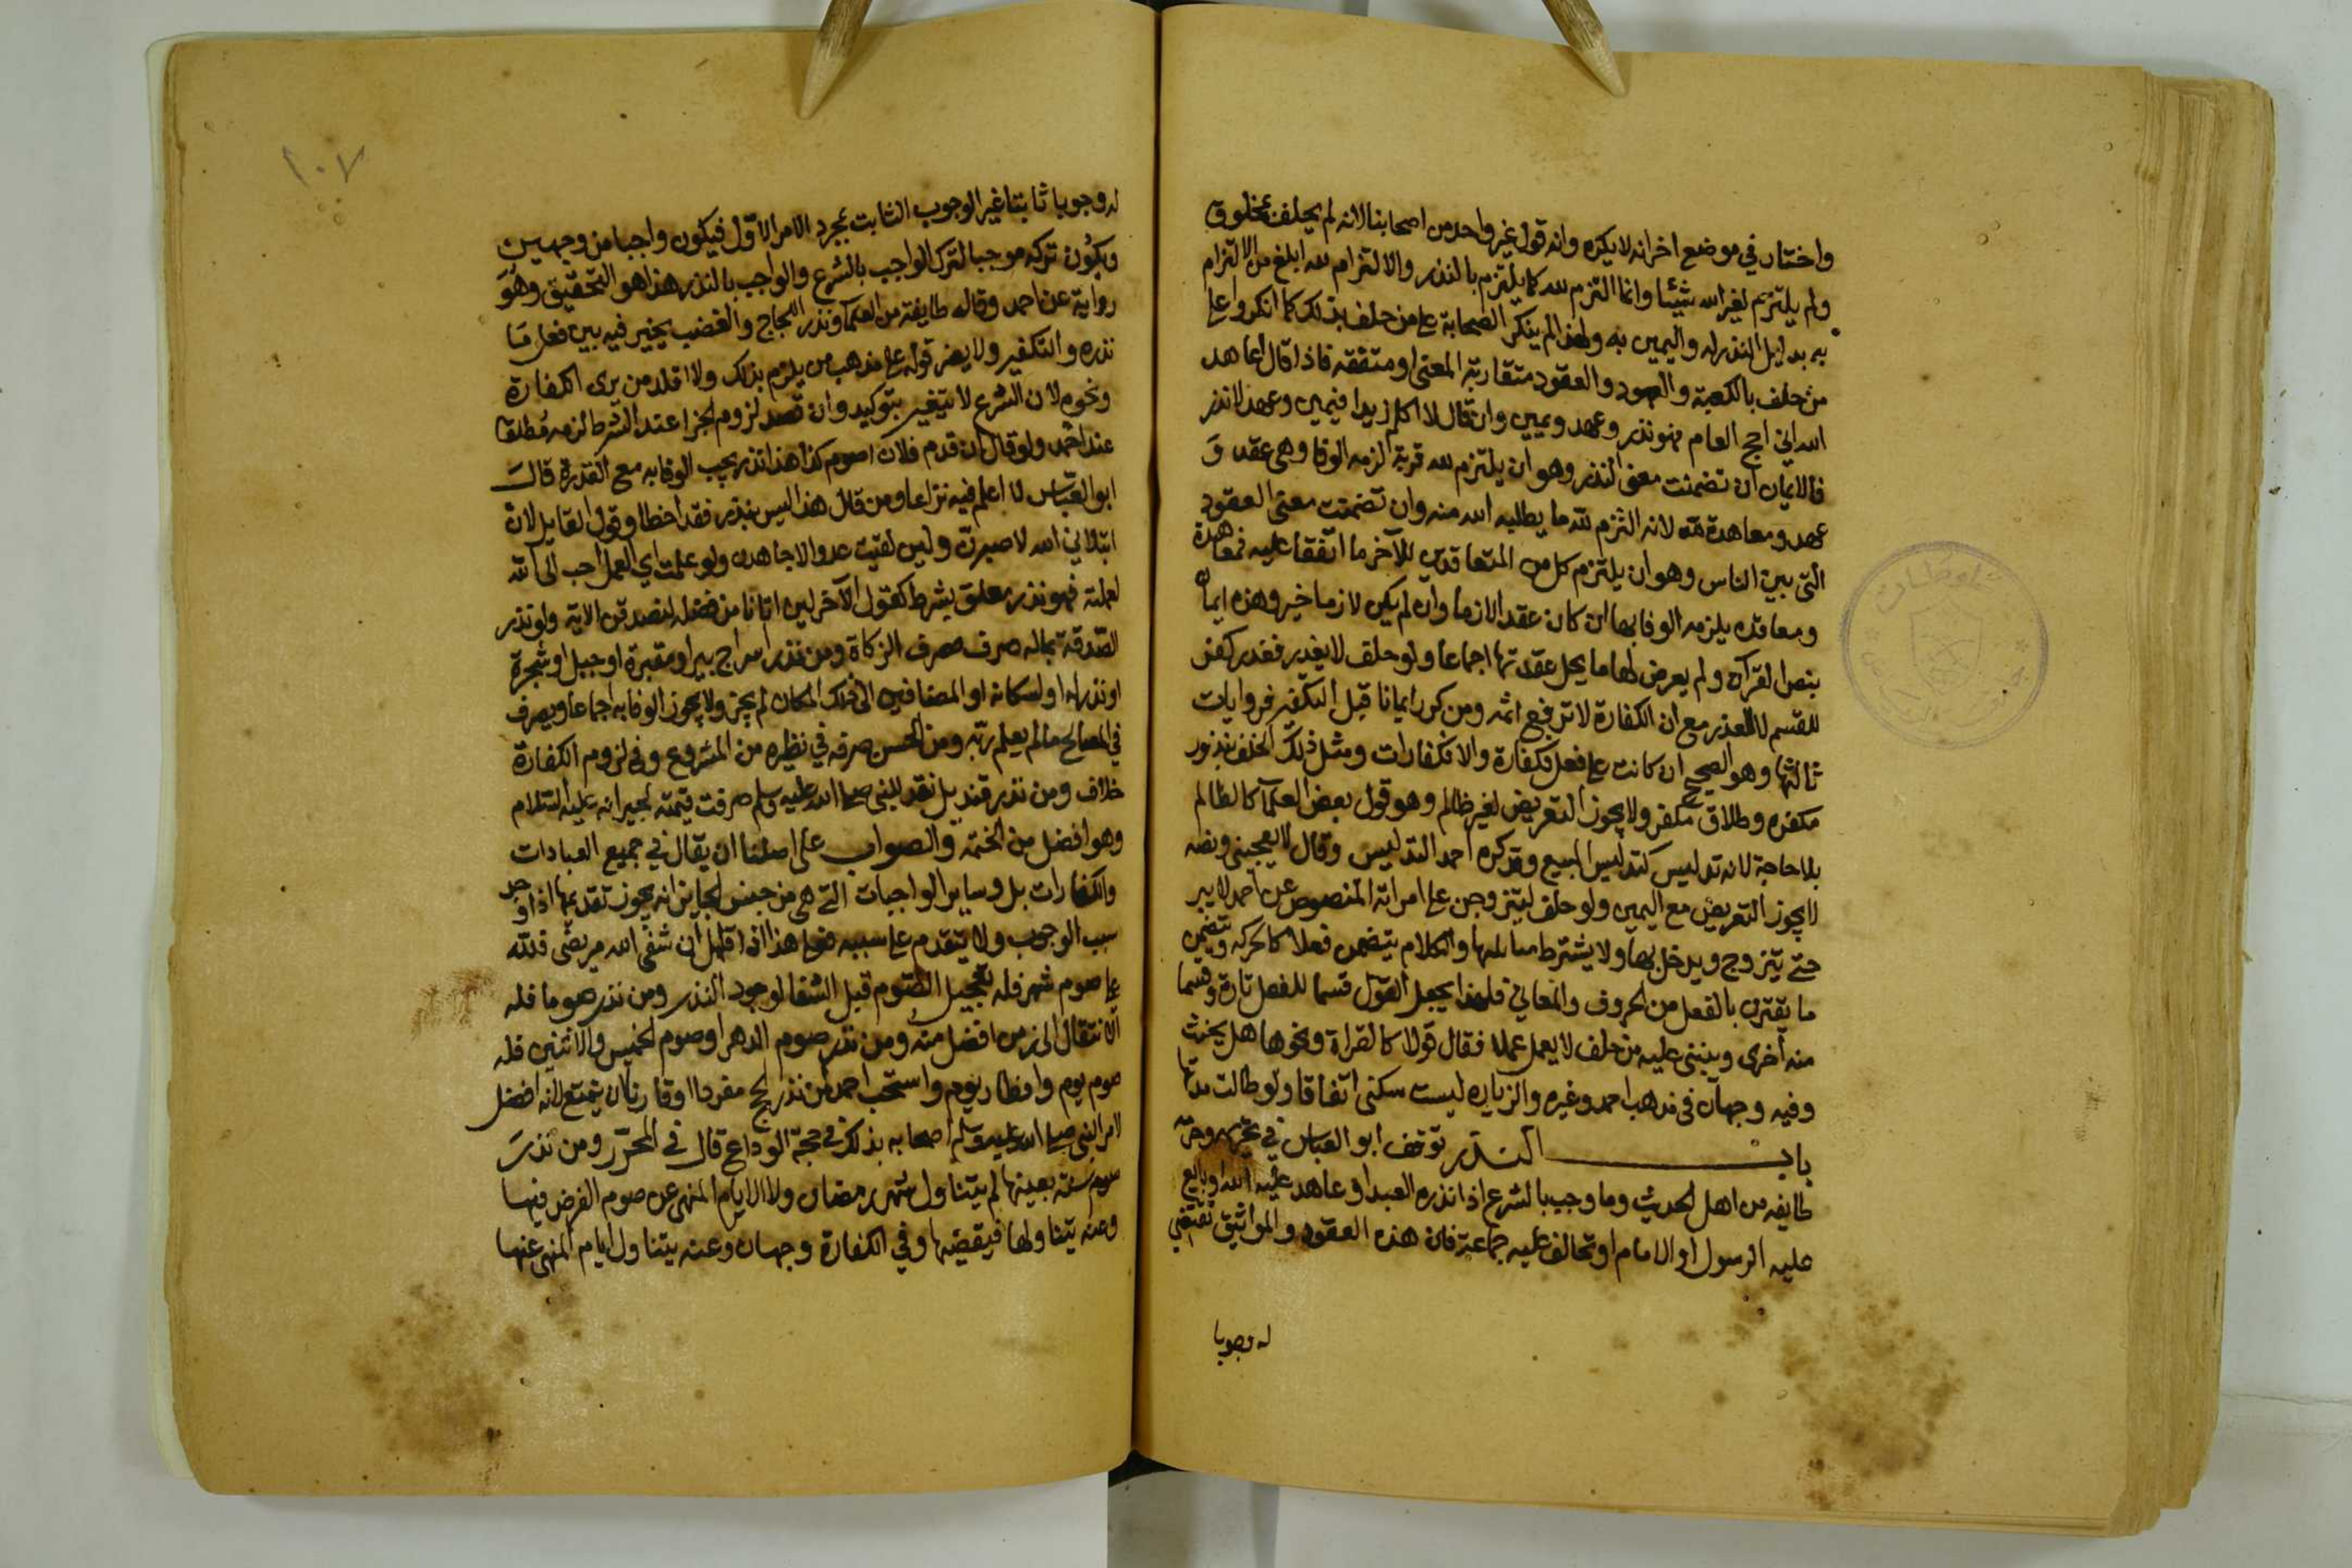 واختار في موضع اخر انه لا يكره وانه قول غير واحد من اصحابنا لانه لم يحلف بمخلوق
ولم يلتزم لغير الله شيئا وانما التزم لله كما يلتزم بالنذر والالتزام لله ابلغ من الالتزام
به بدليل النذر له واليمين به ولهذا لم ينكر الصحابة على من حلف بذلك كما انكروا على
من حلف بالكعبة والعهود والعقود متقاربة المعنى او متفقه فاذا قال اعاهد
الله اني احج العام فهو نذر وعهد ويمين وان قال لا اكلم زيدا فيمين وعهد لا نذر
فالايمان ان تضمنت معنى النذر وهو ان يلتزم لله قربة لزمه الوفا وهي عقد و
عهد ومعاهدة لله لانه التزم لله ما يطلبه الله منه وان تضمنت معنى العقود
التي بين الناس وهو ان يلتزم كل من المتعاقدين للآخر ما اتفقا عليه فمعاهدة
ومعاقده يلزمه الوفا بها ان كان عقدا لازما وان لم يكن لازما خير وهذه ايمان
بنص القرآن ولم يعرض لها ما يحل عقدتها اجماعا ولو حلف لا يغدر فغدر كفر
للقسم لا للغدر مع ان الكفارة لا ترفع اثمه ومن كرر ايمانا قبل التكفير فروايات
ثالثها وهو الصحيح ان كانت على فعل فكفارة والا فكفارات ومثل ذلك الحلف بنذور
مكفره وطلاق مكفر ولا يجوز التعريض لغير ظالم وهو قول بعض العلماء كالظالم
بلا حاجة لانه تدليس كتدليس المبيع وقد كره احمد التدليس وقال لا يعجبني ونصه
لا يجوز التعريض مع اليمين ولو حلف ليتزوجن على امراته المنصوص عن احمد لا يبر
حتى يتزوج ويدخل بها ولا يشترط مماثلتها والكلام يتضمن فعلا كالحركه ويتضمن
ما يقترن بالفعل من الحروف والمعاني فلهذا يجعل القول قسما للفعل تارة وقسما
منه أخرى وينبني عليه من حلف لا يعمل عملا فقال قولا كالقراة ونحوها هل يحنث
وفيه وجهان في مذهب احمد وغيره والزياره ليست سكنى اتفاقا ولو طالت مدتها
باب النذر توقف ابو العباس في تحريمه وحرمه
طايفه من اهل الحديث وما وجب بالشرع اذا نذره العبد او عاهد عليه الله او بايع
عليه الرسول او الامام او تحالف عليه جماعة فان هذه العقود والمواثيق تقتضي
له وجوبا
١٠٧
له وجوبا ثابتا غير الوجوب الثابت بمجرد الامر الاول فيكون واجبا من وجهين
ويكون تركه موجبا لترك الواجب بالشرع والواجب بالنذر هذا هو التحقيق وهو
رواية عن احمد وقاله طايفة من العلماء ونذر اللجاج والغضب يخير فيه بين فعل ما
نذره والتكفير ولا يضر قوله على مذهب من يلزم بذلك ولا اقلد من يرى الكفارة
ونحوه لان الشرع لا يتغير بتوكيد وان قصد لزوم الجزا عند الشرط لزمه مطلقا
عند احمد ولو قال ان قدم فلان اصوم كذا هذا نذر يجب الوفا به مع القدرة قال
ابو العباس لا اعلم فيه نزاعا ومن قال هذا ليس بنذر فقد اخطا وقول القايل لان
ابتلاني الله لاصبرن ولين لقيت عدوا لاجاهدن ولو علمت اي العمل احب الى الله
لعملته فهو نذر معلق بشرط كقول الآخر لين اتانا من فضله لنصدقن الايه ولو نذر
الصدقة بماله صرف مصرف الزكاة ومن نذر اسراج بير او مقبرة او جبل او شجرة
او نذر له او لسكانه او المضافين الى ذلك المكان لم يجز ولا يجوز الوفا به اجماعا ويصرف
في المصالح ما لم يعلم ربه ومن الحسن صرفه في نظيره من المشروع وفي لزوم الكفارة
خلاف ومن نذر قنديل نقد للنبي صلى الله عليه وسلم صرفت قيمته لجيرانه عليه السلام
وهو افضل من الختمه والصواب على اصلنا ان يقال في جميع العبادات
والكفارات بل وساير الواجبات التي هي من جنس الجايز انه يجوز تقديمها اذا وجد
سبب الوجوب ولا يتقدم على سببه فعلى هذا اذا قال ان شفى الله مريضي فلله
علي صوم شهر فله تعجيل الصوم قبل الشفا لوجود النذر ومن نذر صوما فله
الانتقال الى زمن افضل منه ومن نذر صوم الدهر او صوم الخميس والاثنين فله
صوم يوم وافطار يوم واستحب احمد لمن نذر الحج مفردا او قارنا ان يتمتع لانه افضل
لامر النبي صلى الله عليه وسلم اصحابه بذلك في حجة الوداع قال في المحرر ومن نذر
صوم سنة بعينها لم يتناول شهر رمضان ولا الايام المنهى عن صوم الفرض فيها
وعنه يتناولها فيقضيها وفي الكفارة وجهان وعنه يتناول ايام المنهى عنها